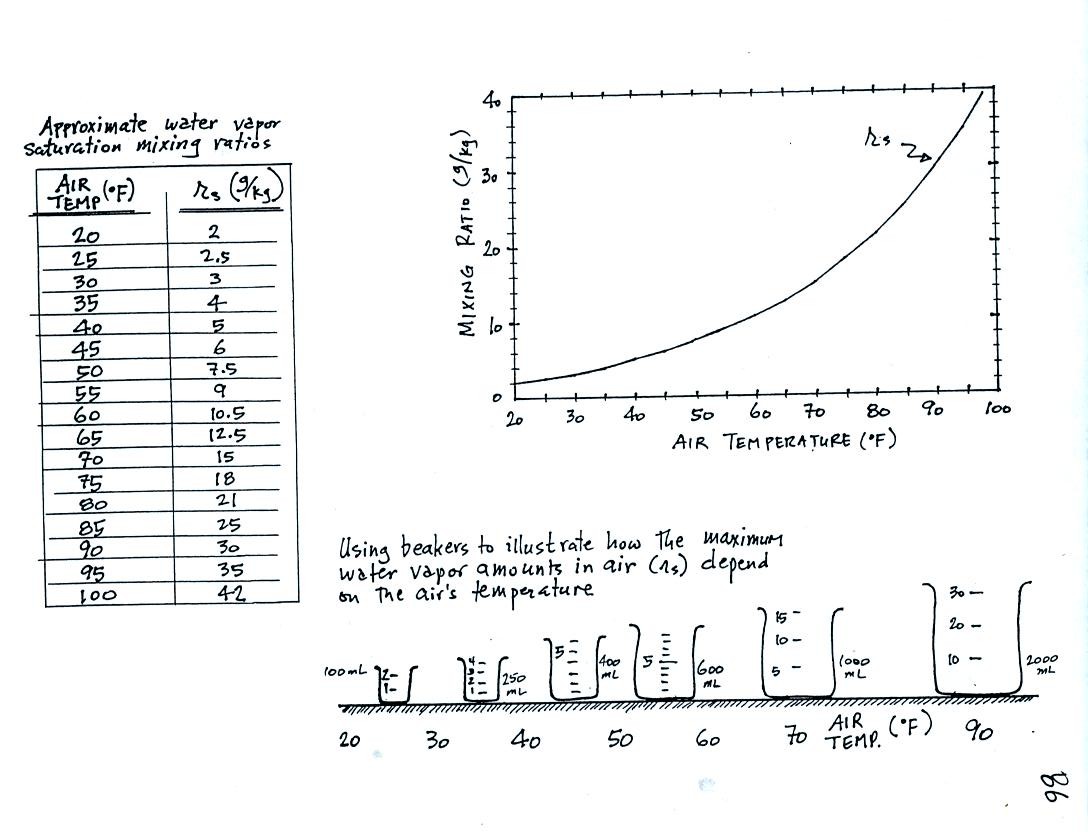 Approximate water vapor
saturation mixing ratios
AIR TEMP (°F) rs (g/kg)
20 2
25 2.5
30 3
35 4
40 5
45 6
50 7.5
55 9
60 10.5
65 12.5
70 15
75 18
80 21
85 25
90 30
95 35
100 42
40
30
20
10
0
MIXING RATIO (g/kg)
rs
20 30 40 50 60 70 80 90 100
AIR TEMPERATURE (°F)
Using beakers to illustrate how the maximum
water vapor amounts in air (rs) depend
on the air's temperature
100 mL
2
1
4
3
2
1
250 mL
5
400 mL
5
600 mL
15
10
5
1000 mL
30
20
10
2000 mL
20 30 40 50 60 70 AIR TEMP. (°F) 90
98